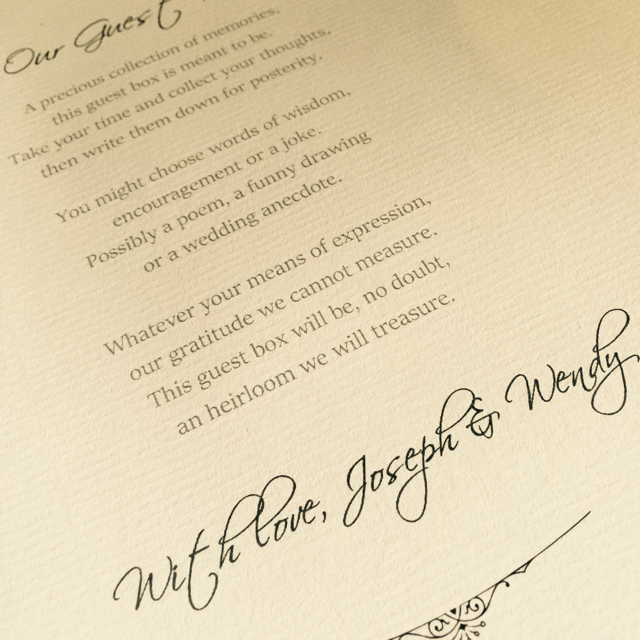 Our Guest
A precious collection of memories,
this guest box is meant to be.
Take your time and collect your thoughts,
then write them down for posterity.
You might choose words of wisdom,
encouragement or a joke.
Possibly a poem, a funny drawing
or a wedding anecdote.
Whatever your means of expression,
our gratitude we cannot measure.
This guest box will be, no doubt,
an heirloom we will treasure.
With love, Joseph & Wendy